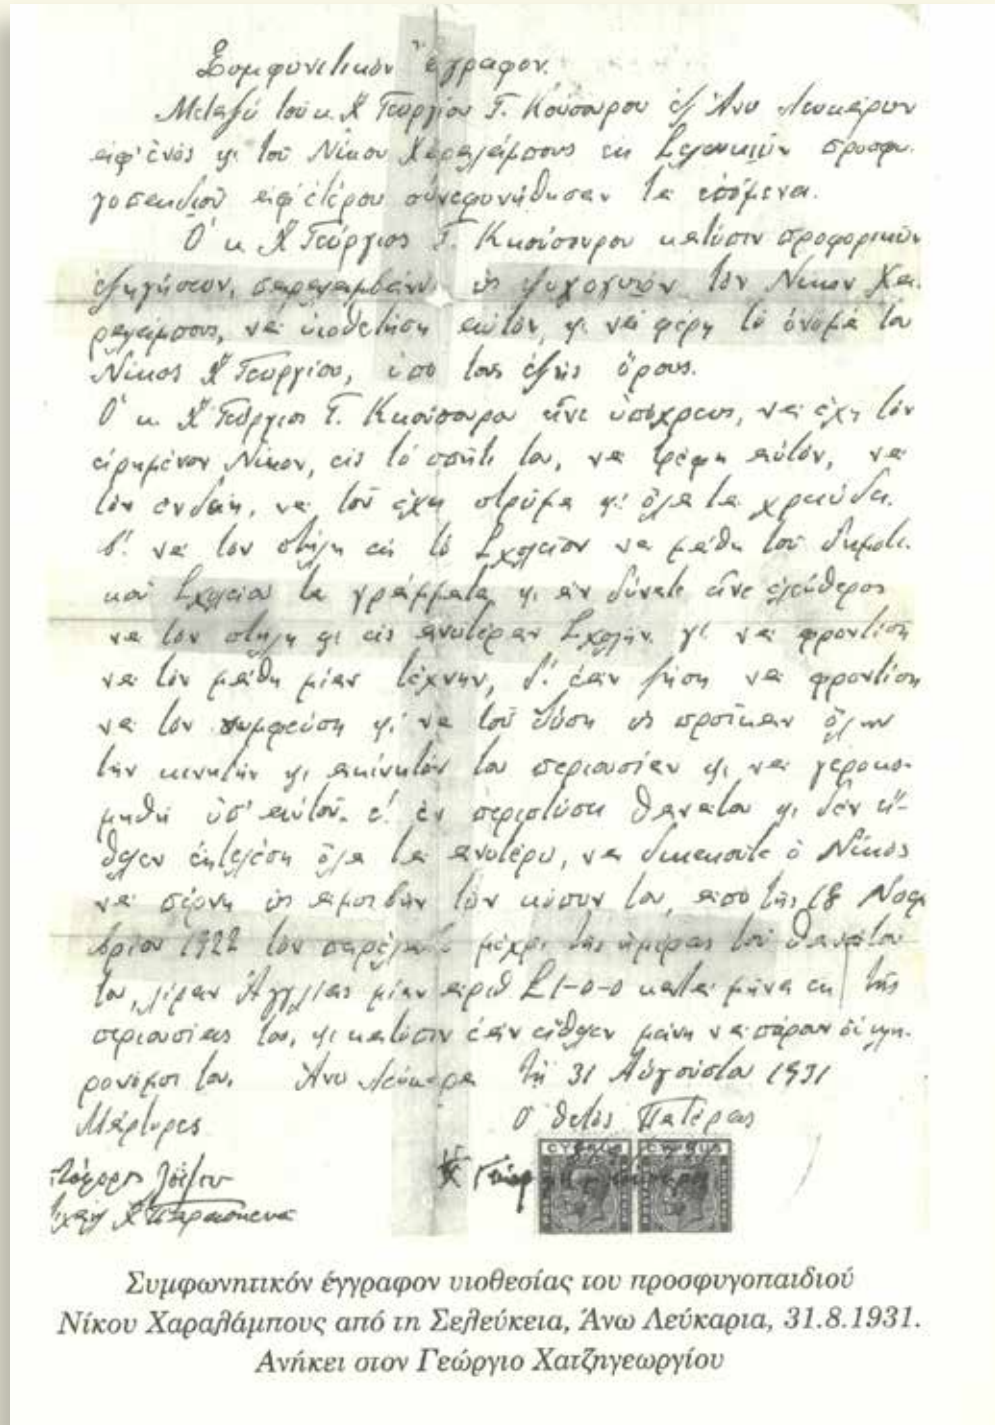 Συμφωνετικόν έγραφον.
Μεταξύ του κ. Χ" Γεωργίου Γ. Κούσουρου εξ Άνω Λευκάρων
αφ' ενός κι του Νίκου Χαραλάμπους εκ προσφυ-
γοπαιδιού αφ' ετέρου συνεφωνήθησαν τα επόμενα.
Ο κ. Χ" Γεώργιος Γ. Κκούσουρου κατόπιν προφορικών
εξηγήσεων, παραλαμβάνι ως ψυχογυιόν τον Νίκον Χα-
ραλάμπους, να υιοθετήση αυτόν, κι να φέρη το όνομά του
Νίκος Χ" Γεωργίου, υπό τους εξής όρους.
Ο κ. Χ" Γεώργιος Γ. Κκούσουρου είνε υπόχρεως, να έχη τον
ειρημένον Νίκον, εις το σπήτι του, να τρέφη αυτόν, να
τον ενδύη, να του έχη στρώμα κι όλα τα χρειώδη.
β'. να τον στήλη εις το Σχολείον να μάθη του δημοτι-
κού Σχολείου τα γράμματα κι αν δύνατε είνε ελεύθερος
να τον στήλη κι εις ανωτέραν Σχολήν. γ'. να φροντίση
να τον μάθη μίαν τέχνην, δ'. εάν ζήση να φροντίση
να τον νυμφεύση κι να του δώση ως προίκαν όλην
την κινητήν κι ακίνητόν του περιουσίαν κι να γεροκο-
μηθή υπ' αυτού. ε'. εν περιπτώσι θανάτου κι δεν ή-
θελεν εκτελέση όλα τα ανωτέρω, να δικεούτε ο Νίκος
να πέρνη ως αμοιβήν τον κόπον του, από της 18 Νοεμ
βρίου 1922 τον παρέλαβε μέχρι της ημέρας του θανάτου
του, λίραν Αγγλίας μίαν αριθ £1-0-0 κατά μήνα εκ της
περιουσίας του, κι κατόπιν εάν είθελεν μείνη να πάρουν οι κλη-
ρονόμοι του. Άνω Λεύκαρα τη 31 Αυγούστου 1931
Μάρτυρες Ο θετός Πατέρας
Χ" Παρασκευά
CYPRUS CYPRUS
Συμφωνητικόν έγγραφον υιοθεσίας του προσφυγοπαιδιού
Νίκου Χαραλάμπους από τη Σελεύκεια, Άνω Λεύκαρια, 31.8.1931.
Ανήκει στον Γεώργιο Χατζηγεωργίου